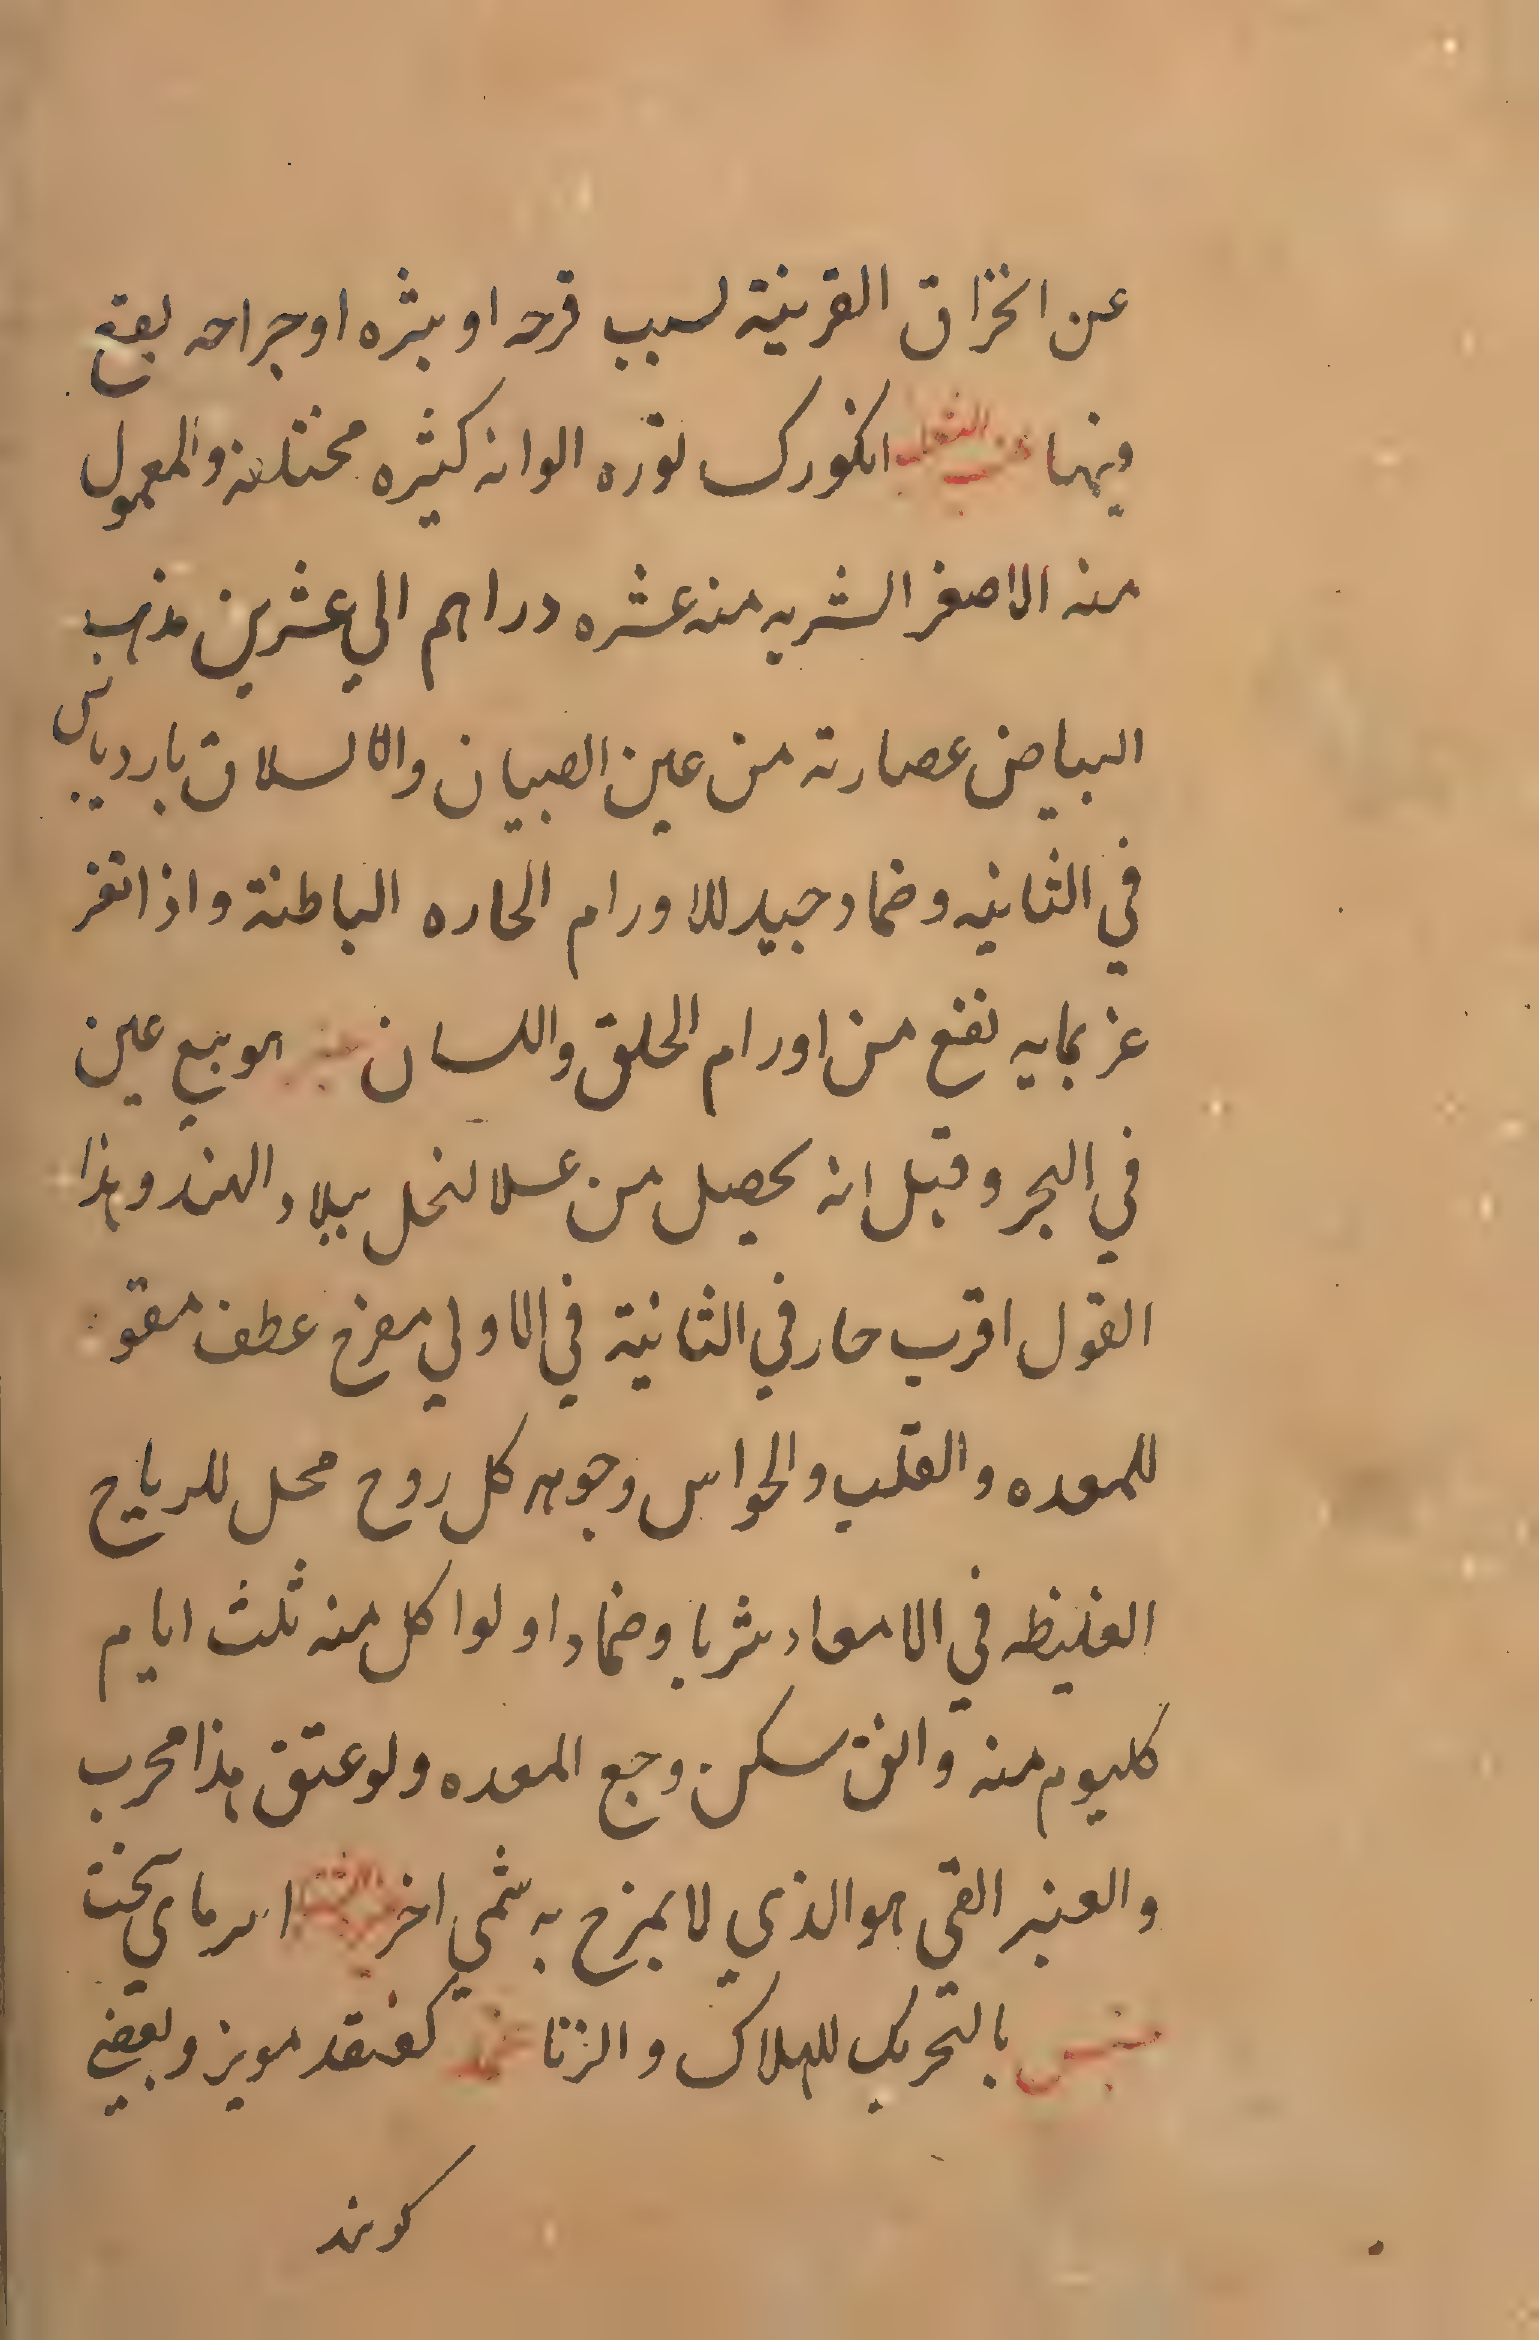 عن انخزاق القرينة لسبب قرحه او بثره او جراحه يقع
فيها عنب الثعلب انكورك نوره الوانه كثيره مختلفة والمعمول
منه الاصفر الشربه منه عشره دراهم الي عشرين مذهب
البياض عصارته من عين الصبيان والالسلاق بارد يابس
في الثانيه وضماد جيد للاورام الحاره الباطنة واذا تغر
غر بمايه نفع من اورام الحلق واللسان عنبر هو ينبع عين
في البحر وقيل انه يحصل من عسلا لنحل ببلاد الهند وهذا
القول اقرب حار في الثانية في الاولي مفرح عطف مقو
للمعده والقلب والحواس وجوهر كل روح محل للرياح
الغليظه في الامعاء شربا وضمادا ولوا كل منه ثلث ايام
كليوم منه وانق سكن وجع المعده ولو عتق هذا مجرب
والعنبر القي هو الذي لا يمزج به شي اخر سرماي سخت
بالتحريك للهلاك والزنا كعنقد مويز وبعضي
كويند